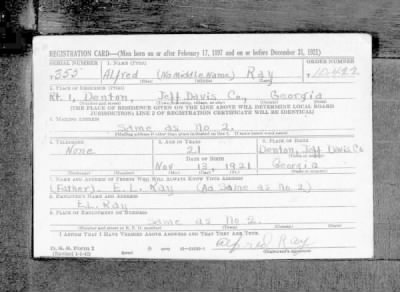 REGISTRATION CARD—(Men born on or after February 17, 1897 and on or before December 31, 1921)
SERIAL NUMBER 1. NAME (Print) ORDER NUMBER
355 Alfred (No middle Name) Ray 10,422
(First) (Middle) (Last)
2. PLACE OF RESIDENCE (Print)
Rt. 1, Denton, Jeff Davis Co., Georgia
(THE PLACE OF RESIDENCE GIVEN ON THE LINE ABOVE WILL DETERMINE LOCAL BOARD
JURISDICTION; LINE 2 OF REGISTRATION CERTIFICATE WILL BE IDENTICAL)
3. MAILING ADDRESS
Same as No. 2.
(Mailing address if other than place indicated on line 2. If same insert word same)
4. TELEPHONE 5. AGE IN YEARS 6. PLACE OF BIRTH
None 21 Denton, Jeff Davis Co
DATE OF BIRTH
Nov 13, 1921 Georgia
7. NAME AND ADDRESS OF PERSON WHO WILL ALWAYS KNOW YOUR ADDRESS
(Father). E. L. Ray (As Same as no. 2)
8. EMPLOYER'S NAME AND ADDRESS
E.L. Ray
9. PLACE OF EMPLOYMENT OR BUSINESS
Same as No 2.
I AFFIRM THAT I HAVE VERIFIED ABOVE ANSWERS AND THAT THEY ARE TRUE.
D. S. S. Form 1 Alfred Ray